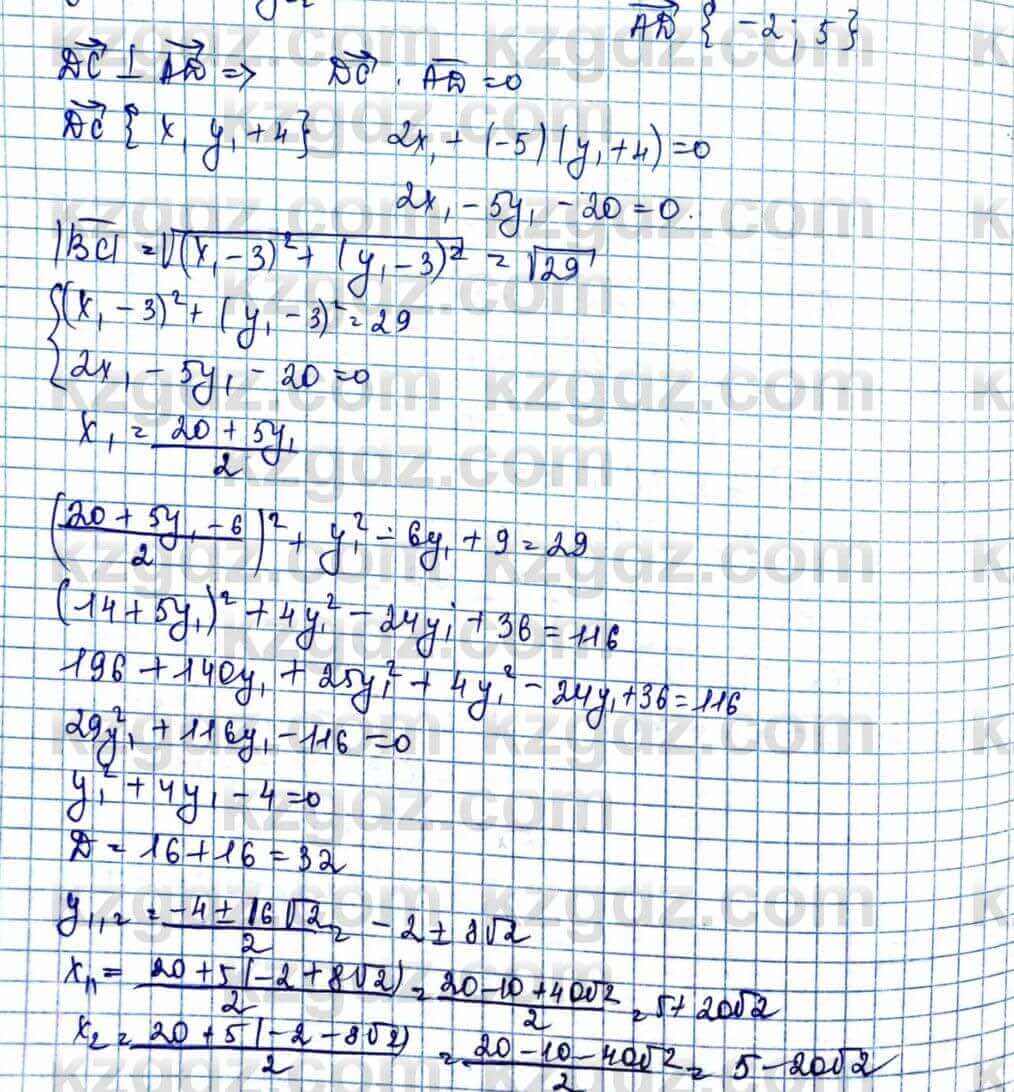 AD⃗ {-2; 5}
DC⃗ ⊥ AD⃗ => DC⃗ · AD⃗ = 0
DC⃗ {x₁ y₁ + 4} 2x₁ + (-5)(y₁ + 4) = 0
2x₁ - 5y₁ - 20 = 0.
|BC| = √((x₁ - 3)² + (y₁ - 3)²) = √29
{(x₁ - 3)² + (y₁ - 3)² = 29
2x₁ - 5y₁ - 20 = 0
x₁ = (20 + 5y₁)/2
((20 + 5y₁ - 6)/2)² + y₁² - 6y₁ + 9 = 29
(14 + 5y₁)² + 4y₁² - 24y₁ + 36 = 116
196 + 140y₁ + 25y₁² + 4y₁² - 24y₁ + 36 = 116
29y₁² + 116y₁ - 116 = 0
y₁² + 4y₁ - 4 = 0
D = 16 + 16 = 32
y₁,₂ = (-4 ± 16√2)/2 = -2 ± 8√2
x₁₁ = (20 + 5(-2 + 8√2))/2 = (20 - 10 + 40√2)/2 = 5 + 20√2
x₂ = (20 + 5(-2 - 8√2))/2 = (20 - 10 - 40√2)/2 = 5 - 20√2
kzgdz.com